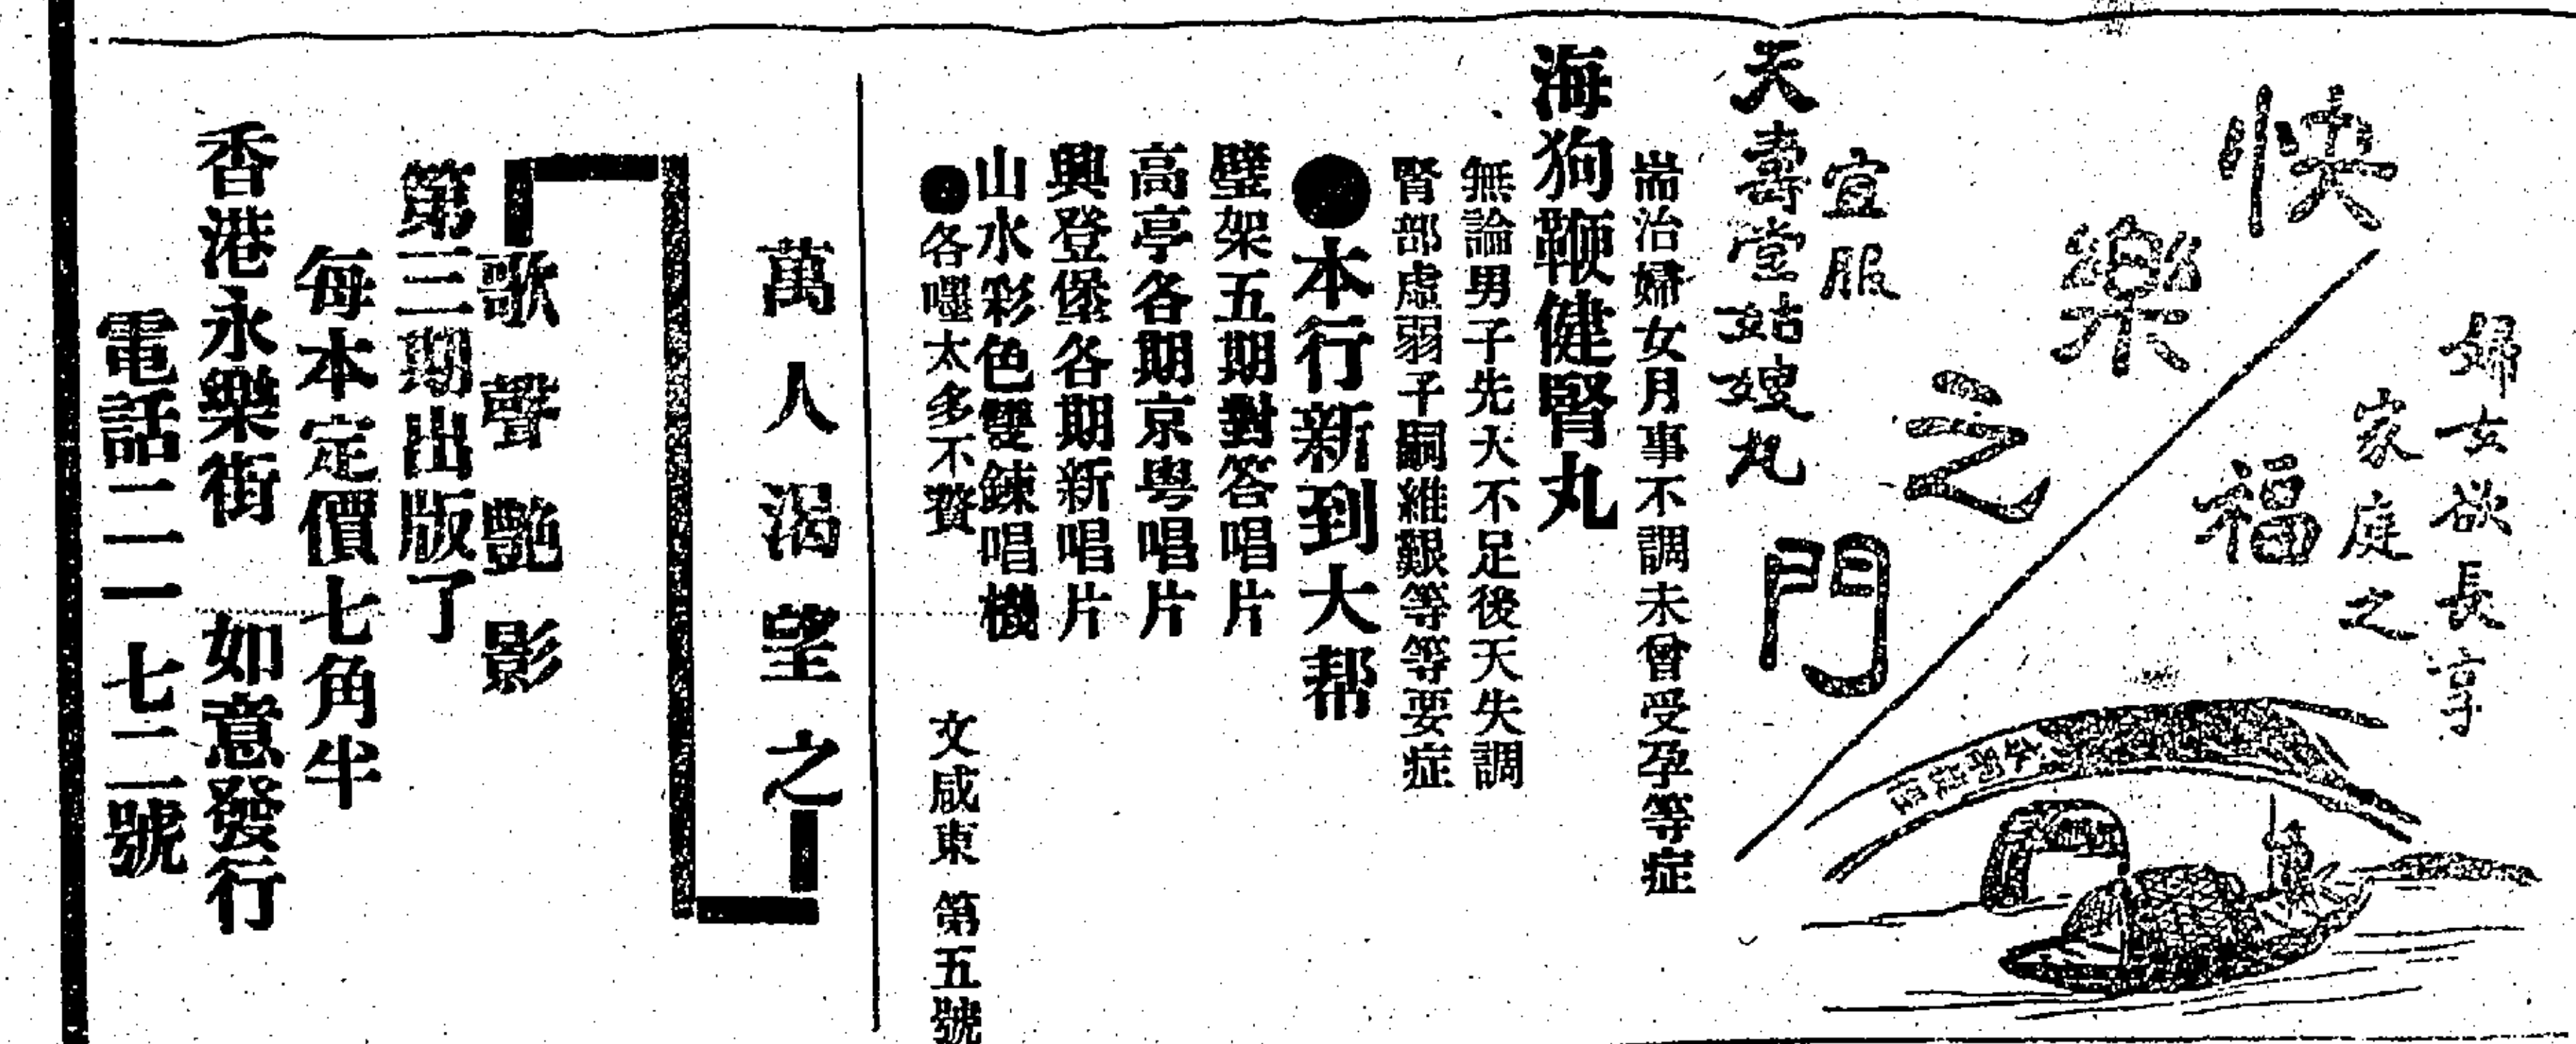 快樂之門
婦女欲長享
家庭之
福
宜服
天壽堂姑嫂丸
耑治婦女月事不調未曾受孕等症
海狗鞭健腎丸
無論男子先天不足後天失調
腎部虛弱子嗣維艱等等要症
●本行新到大帮
璧架五期對答唱片
高亭各期京粤唱片
興登堡各期新唱片
山水彩色雙鍊唱機
●各嘜太多不贅
文咸東 第五號
萬人渴望之
歌聲艷影
第三期出版了
每本定價七角半
香港永樂街 如意發行
電話二一一七二號